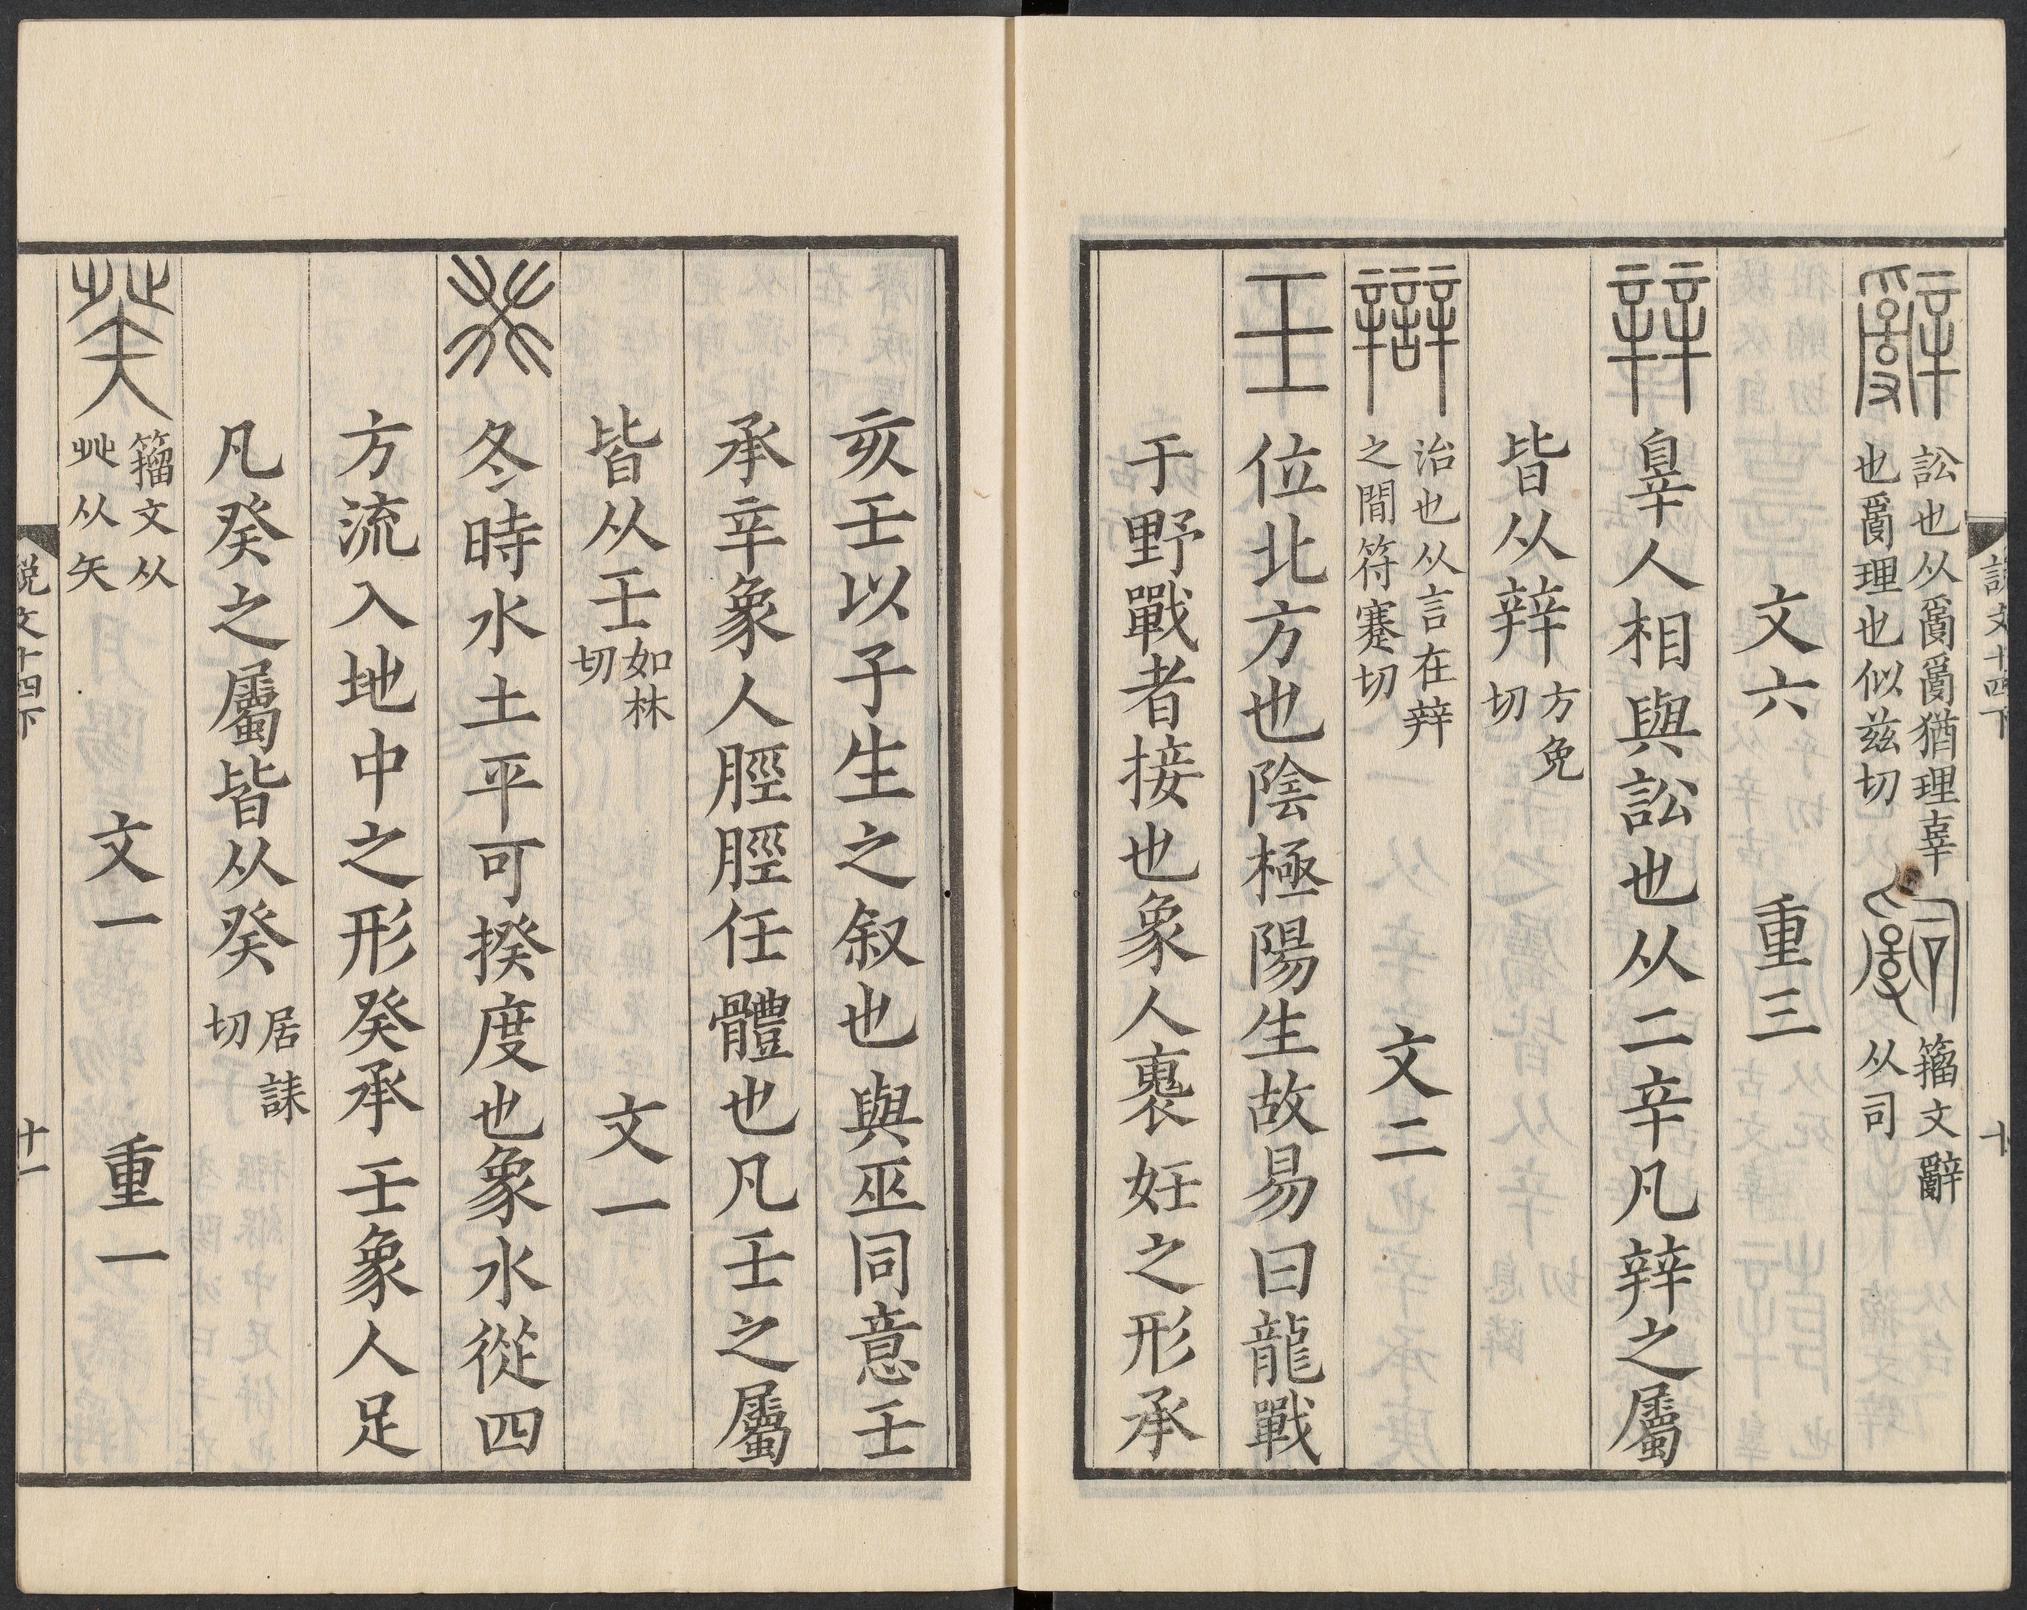 辭 訟也从𤔔𤔔猶理辜
也𤔔理也似兹切 𤔲 籒文辭
从司
文六 重三
辡 辠人相與訟也从二辛凡辡之屬
皆从辡 方免切
辯 治也从言在辡
之間符蹇切 文二
壬 位北方也陰極陽生故易曰龍戰
于野戰者接也象人褢妊之形承
亥壬以子生之叙也與巫同意壬
承辛象人脛脛任體也凡壬之屬
皆从壬 如林切 文一
癸 冬時水土平可揆度也象水從四
方流入地中之形癸承壬象人足
凡癸之屬皆从癸 居誄切
𤼩 籒文从
癶从矢 文一 重一
説文十四下 十
説文十四下 十一